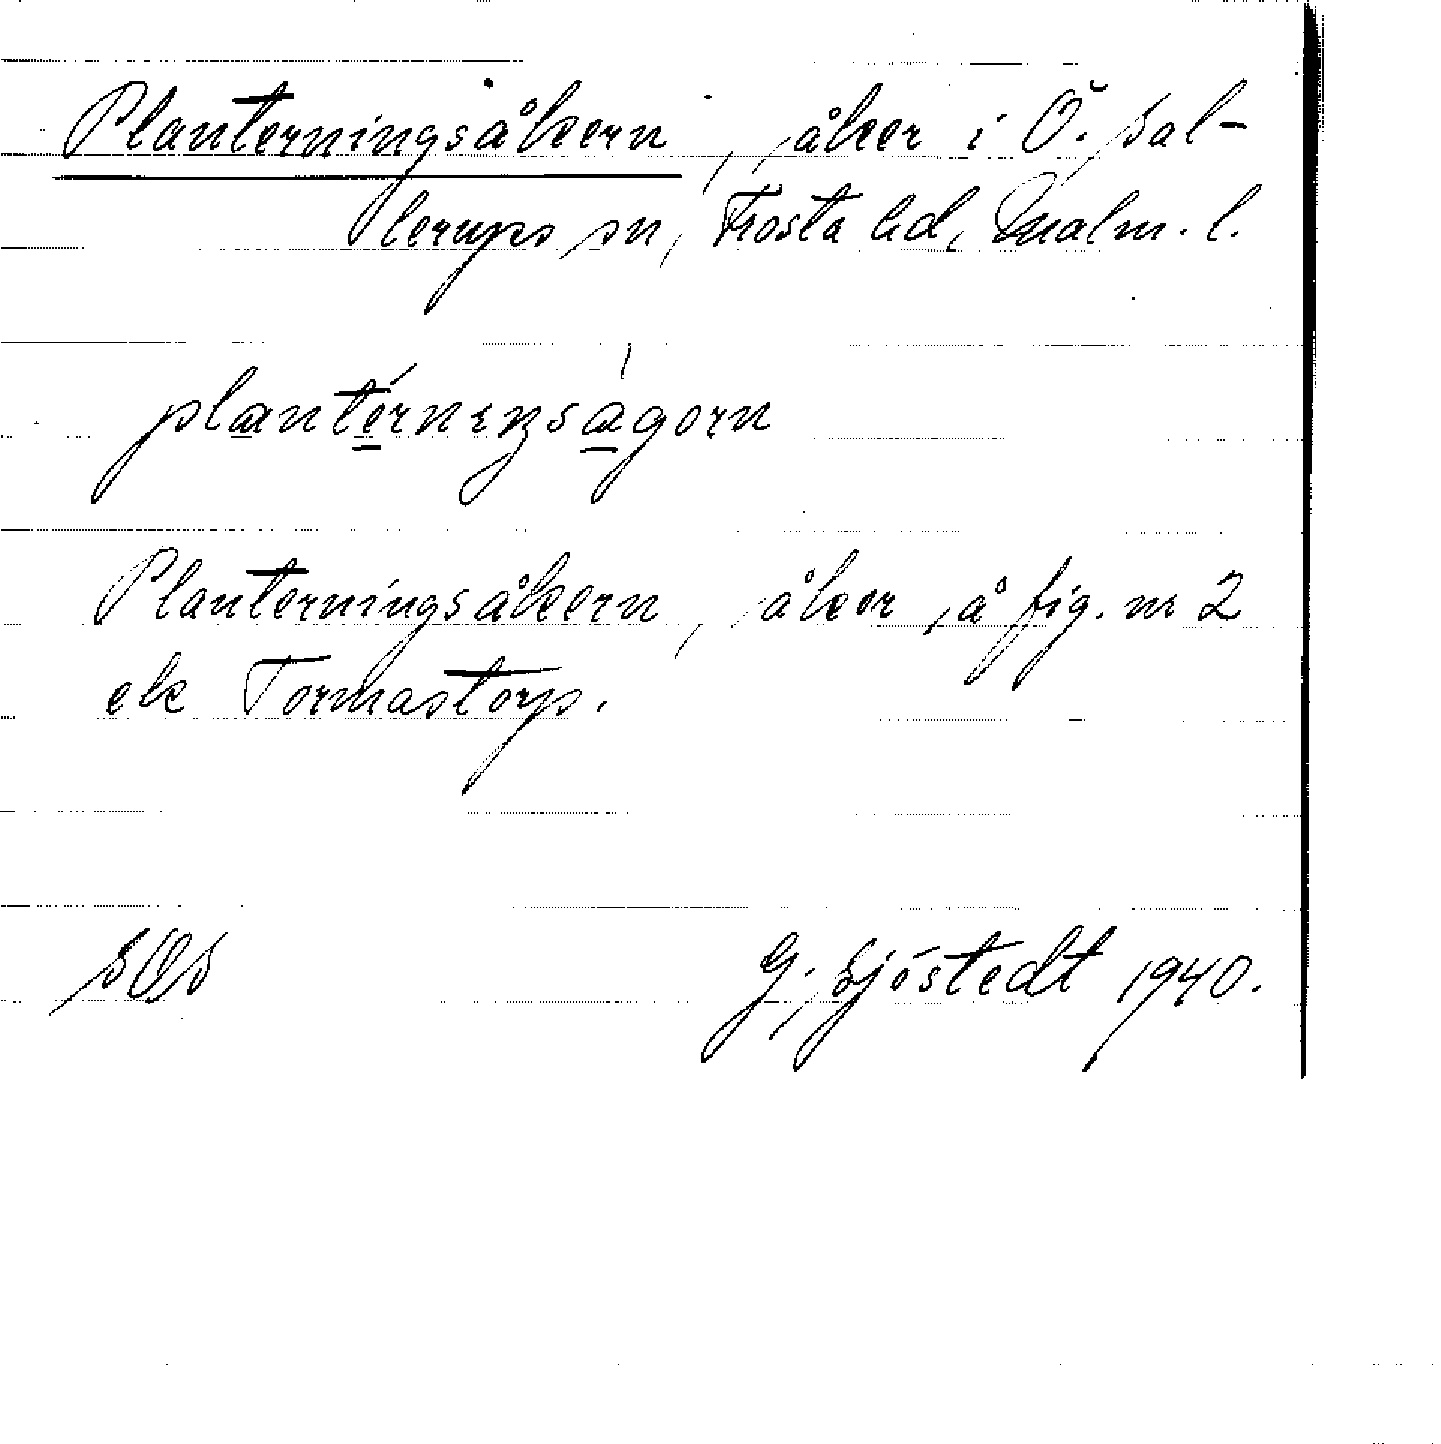 Planterningsåkern, åker i Ö. Sal-
lerups sn, Frosta hd, Malm. l.
plantérnıŋsàgorn
Planterningsåkern, åker å fig. nr 2
ek Tormastorp.
SOS G. Sjöstedt 1940.